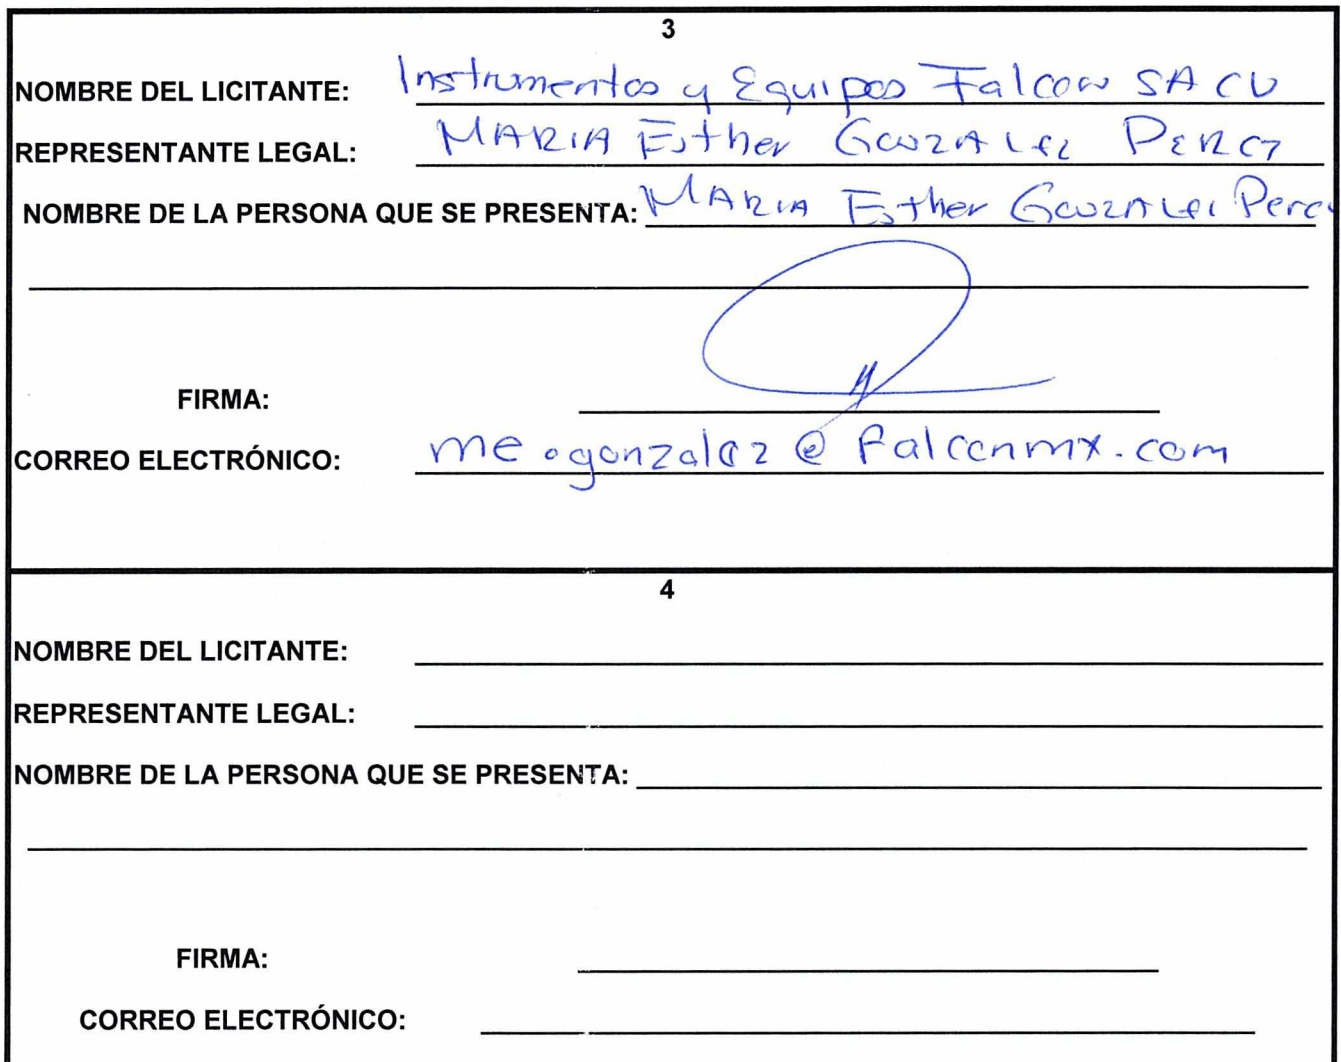 3
NOMBRE DEL LICITANTE: Instrumentos y Equipos Falcon SA CV
REPRESENTANTE LEGAL: MARIA Esther Gonzalez Perez
NOMBRE DE LA PERSONA QUE SE PRESENTA: MARIA Esther Gonzalez Perez
FIRMA:
CORREO ELECTRÓNICO: me.gonzalez@falconmx.com
4
NOMBRE DEL LICITANTE:
REPRESENTANTE LEGAL:
NOMBRE DE LA PERSONA QUE SE PRESENTA:
FIRMA:
CORREO ELECTRÓNICO: